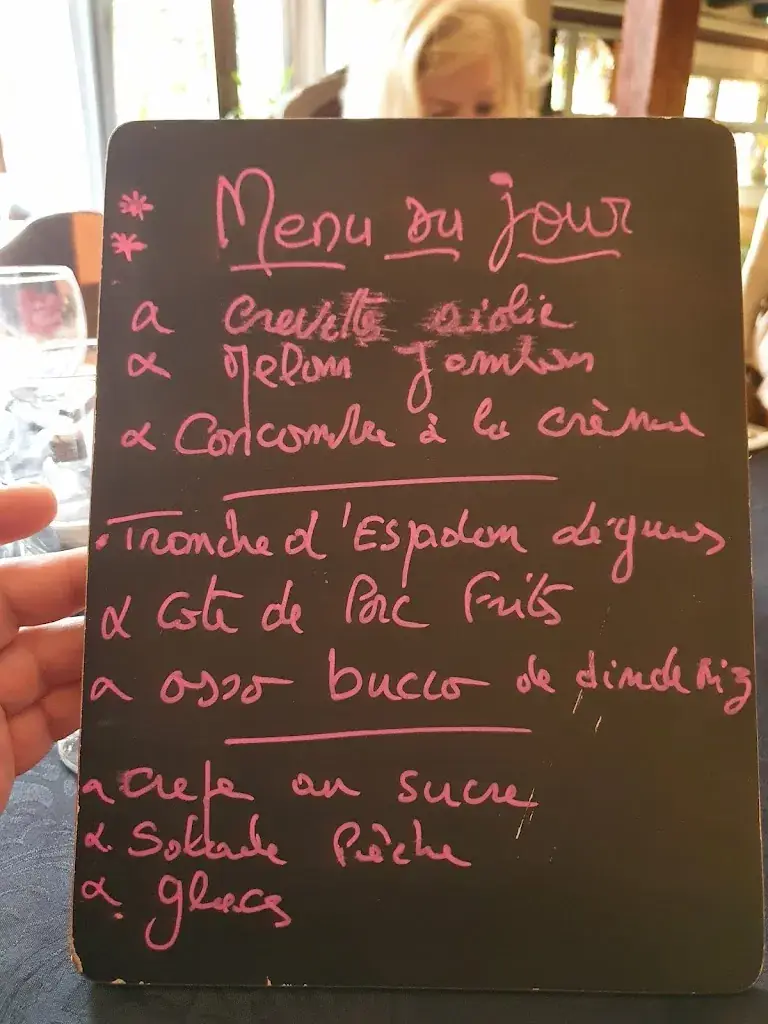 Menu du jour
crevette aiolie
Melon Jambon
Concombre à la crème
Tranche d'Espadon légumes
Cote de Porc Frits
osso bucco de dinde Riz
Crepe au sucre
Salade Pèche
glaces